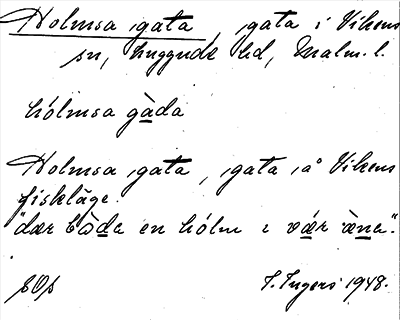 Holmsa gata, gata i Vikens
sn, Luggude hd, Malm. l.
hólmsa gàda
Holmsa gata, gata å Vikens
fiskläge.
"dær bòda en hólm i vǽr ǽna".
I. Ingers 1948.